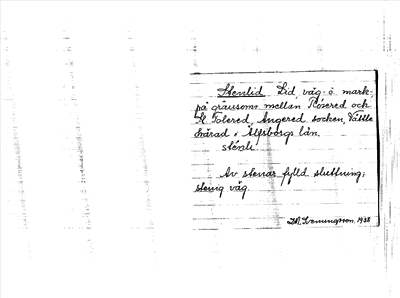 Stenlid Lid, väg o. mark,
på gränsen mellan Rösered och
St Tolered, Angered socken, Vättle
härad, Älfsborgs län.
stéɷli.
Av stenar fylld sluttning;
stenig väg.
1938